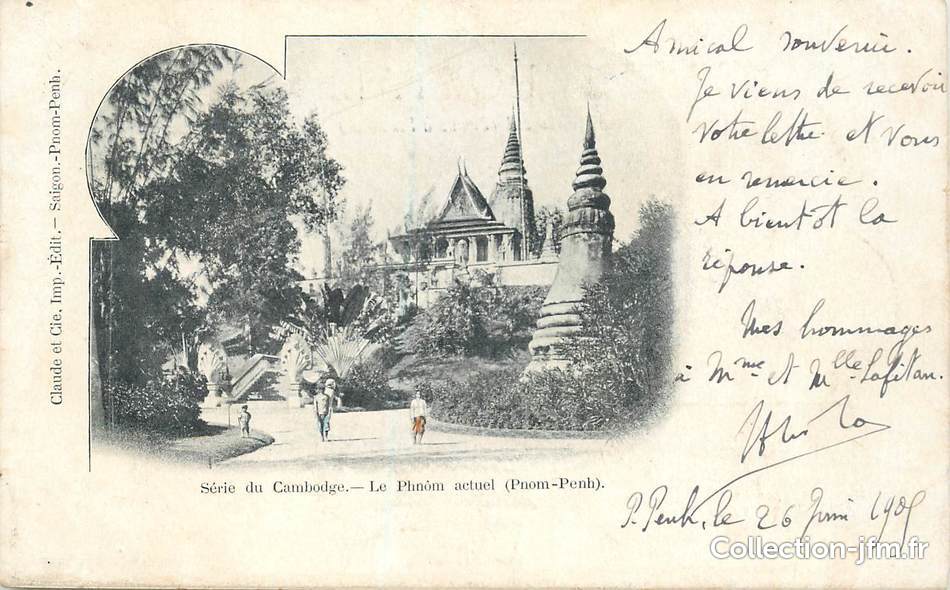 Claude et Cie, Imp.-Édit.— Saigon.-Pnom-Penh.
Amical souvenir.
Je viens de recevoir
votre lettre et vous
en remercie.
A bientôt la
réponse.
Mes hommages
à Mme et Mlle Lafitan.
Série du Cambodge.— Le Phnôm actuel (Pnom-Penh).
P. Penh, le 26 Juin 1905
Collection-jfm.fr